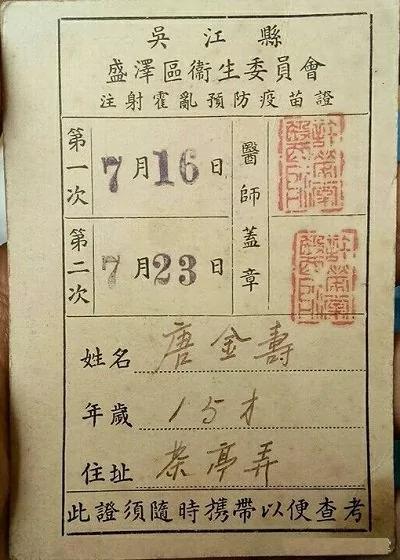 吳江縣
盛澤區衞生委員會
注射霍亂預防疫苗證
第一次 7月16日
第二次 7月23日
醫師蓋章
姓名 唐金壽
年歲 15才
住址 茶亭弄
此證須隨時攜帶以便查考